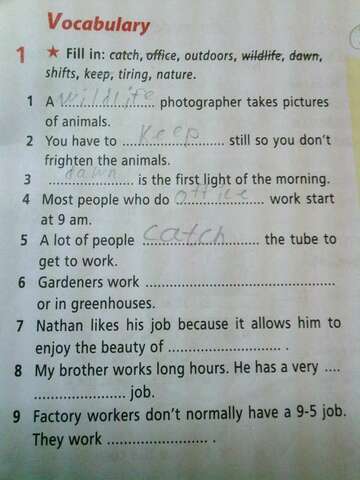 Vocabulary
1 ★ Fill in: catch, office, outdoors, wildlife, dawn,
shifts, keep, tiring, nature.
1 A wildlife photographer takes pictures
of animals.
2 You have to keep still so you don't
frighten the animals.
3 dawn is the first light of the morning.
4 Most people who do office work start
at 9 am.
5 A lot of people catch the tube to
get to work.
6 Gardeners work ....................
or in greenhouses.
7 Nathan likes his job because it allows him to
enjoy the beauty of .................... .
8 My brother works long hours. He has a very ....
.................... job.
9 Factory workers don't normally have a 9-5 job.
They work .................... .